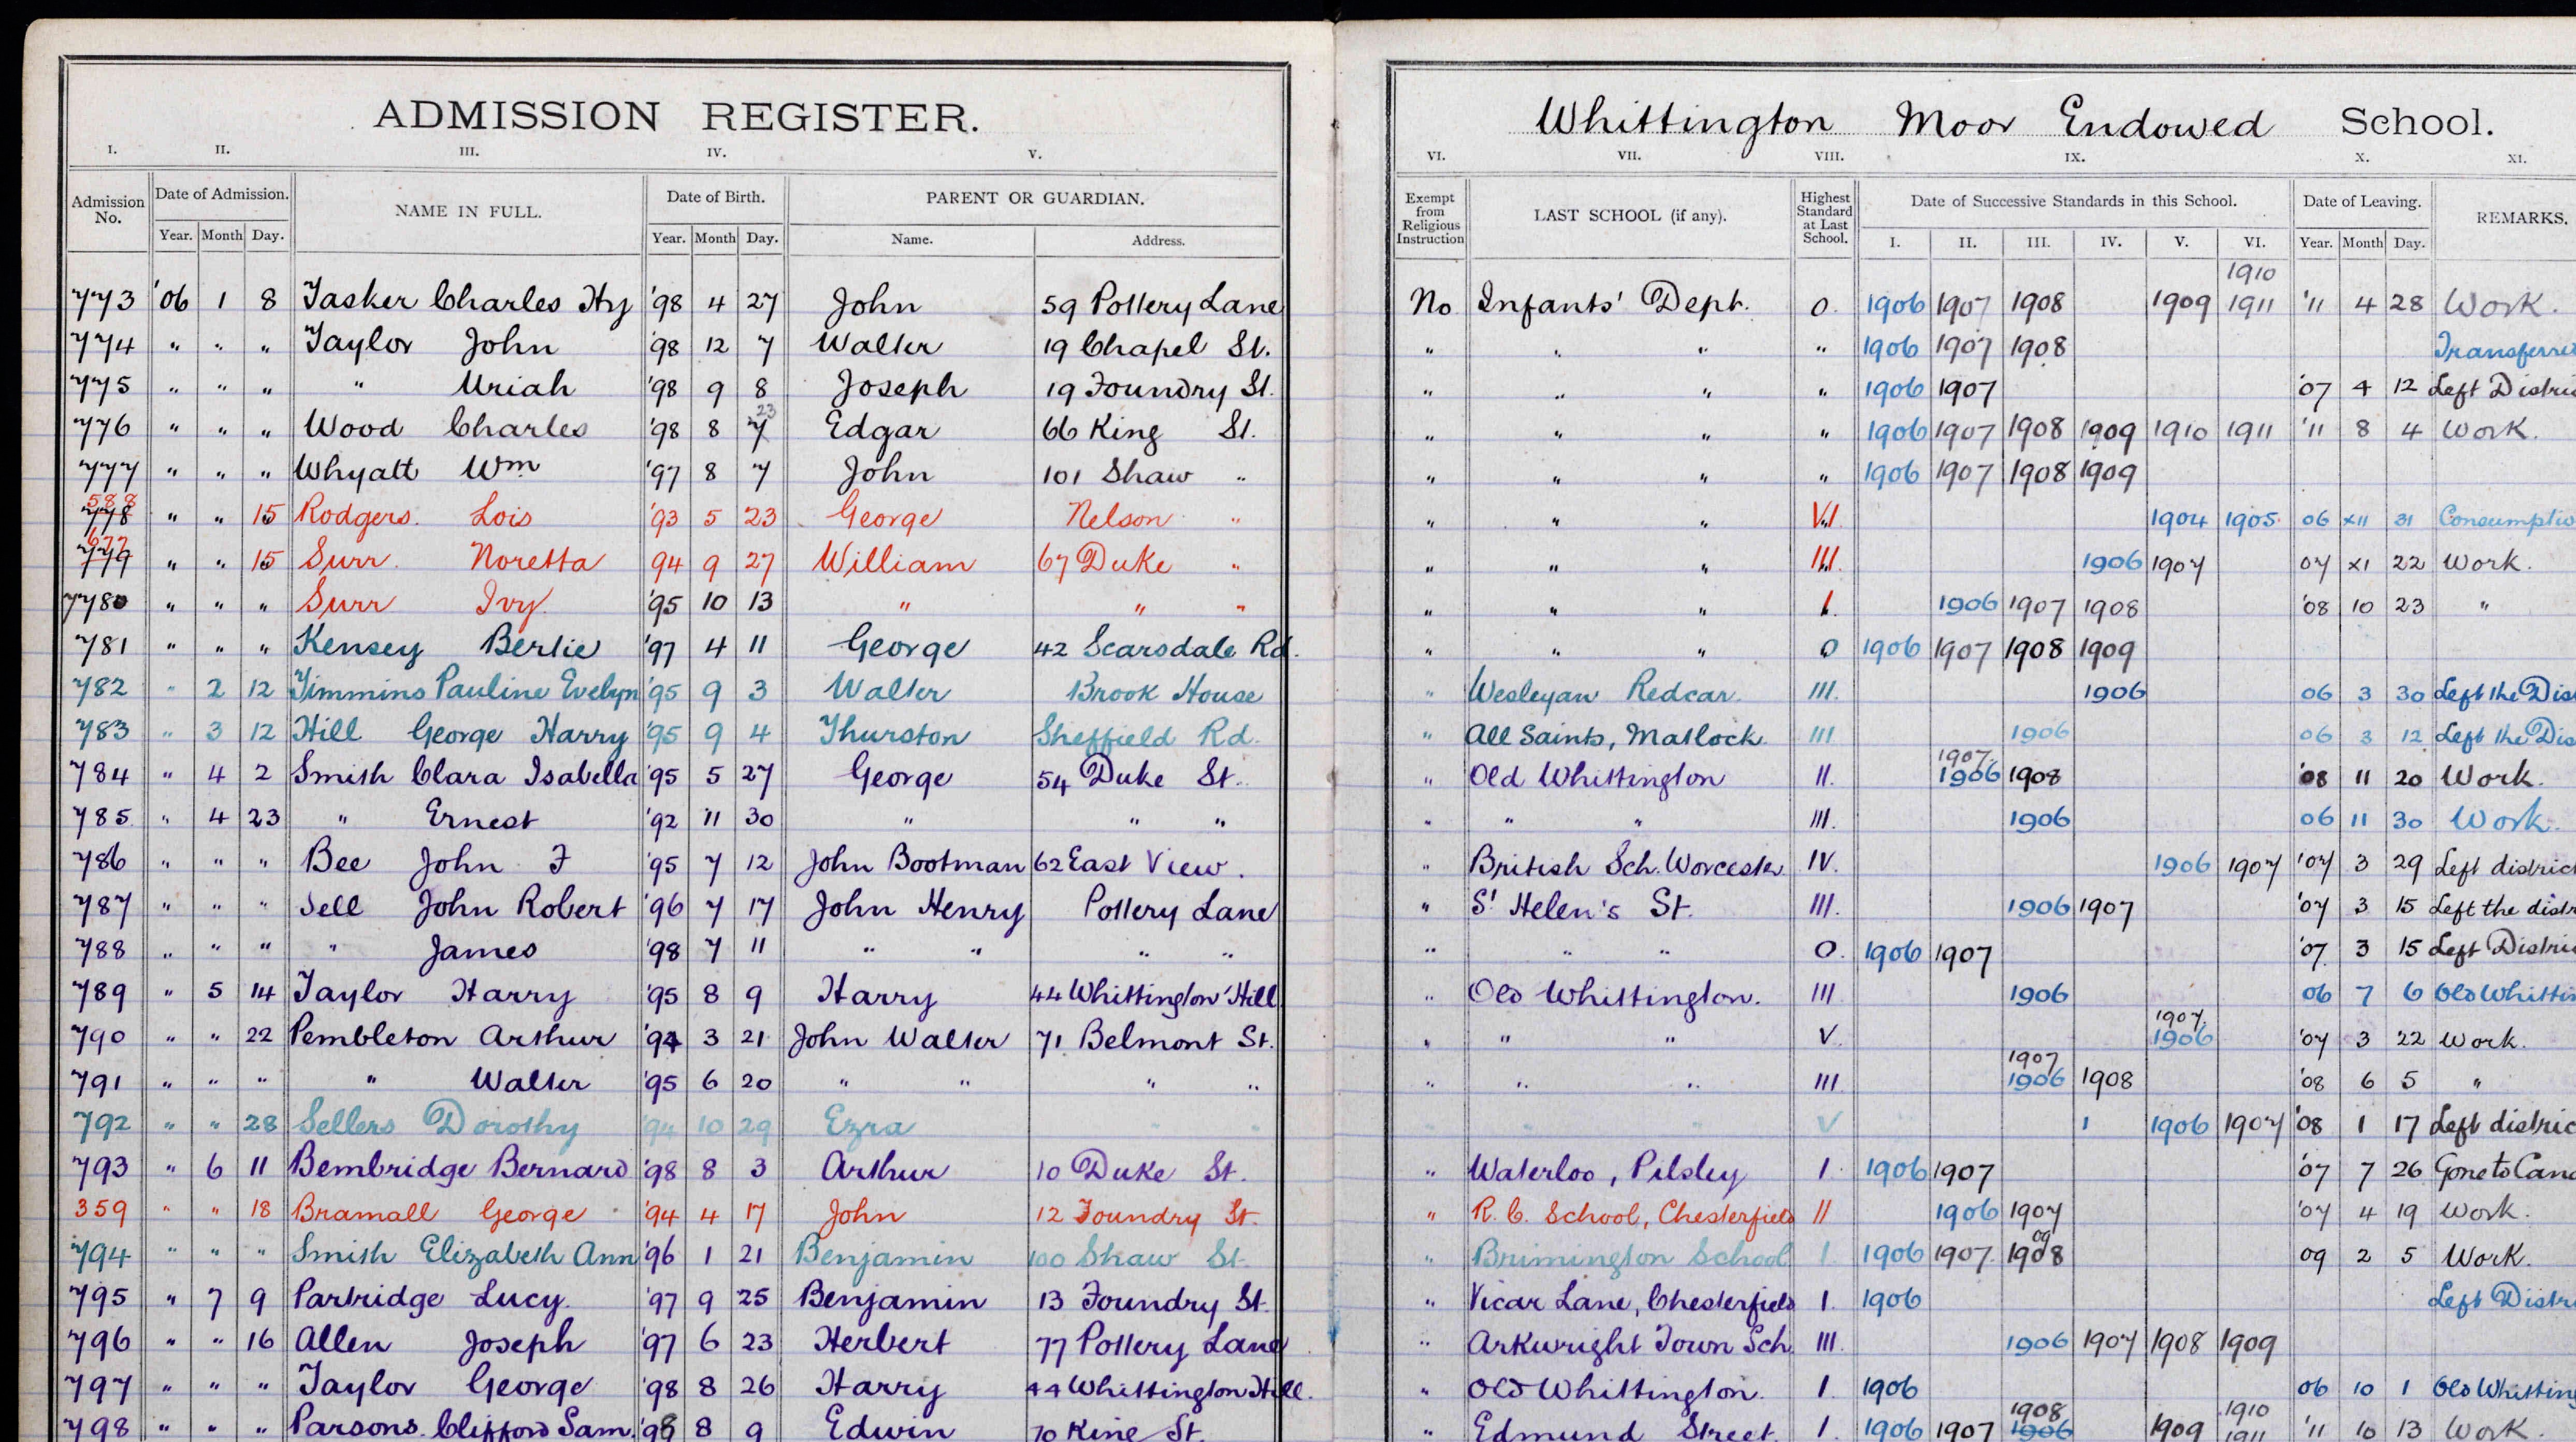 ADMISSION REGISTER.
Whittington Moor Endowed School.
I. II. III. IV. V. VI. VII. VIII. IX. X. XI.
Admission No. Date of Admission. NAME IN FULL. Date of Birth. PARENT OR GUARDIAN. Exempt from Religious Instruction LAST SCHOOL (if any). Highest Standard at Last School. Date of Successive Standards in this School. Date of Leaving. REMARKS.
Year. Month Day. Year. Month Day. Name. Address. I. II. III. IV. V. VI. Year. Month Day.
1910
773 '06 1 8 Tasker Charles Hy '98 4 27 John 59 Pottery Lane No Infants' Dept. 0. 1906 1907 1908 1909 1911 '11 4 28 Work.
774 " " " Taylor John '98 12 7 Walter 19 Chapel St. " " " " 1906 1907 1908
775 " " " " Uriah '98 9 8 Joseph 19 Foundry St. " " " " 1906 1907 '07 4 12 Left
23
776 " " " Wood Charles '98 8 7 Edgar 66 King St. " " " " 1906 1907 1908 1909 1910 1911 '11 8 4 Work.
777 " " " Whyatt Wm '97 8 7 John 101 Shaw " " " " " 1906 1907 1908 1909
588
778 " " 15 Rodgers. Lois '93 5 23 George Nelson " " " " VI. 1904 1905. 06 XII 31
677
779 " " 15 Surr. Noretta 94 9 27 William 67 Duke " " " " III. 1906 1907 07 XI 22 Work.
780 " " " Surr Ivy. '95 10 13 " " " " " " I. 1906 1907 1908 '08 10 23 "
781 " " " Kensey Bertie '97 4 11 George 42 Scarsdale Rd. " " " 0 1906 1907 1908 1909
782 " 2 12 Timmins Pauline Evelyn '95 9 3 Walter Brook House " Wesleyan Redcar. III. 1906 06 3 30 Left the
783 " 3 12 Hill George Harry '95 9 4 Thurston Sheffield Rd. " All Saints, Matlock. III 1906 06 3 12 Left the
1907
784 " 4 2 Smith Clara Isabella '95 5 27 George 54 Duke St. " Old Whittington II. 1906 1908 '08 11 20 Work.
785. " 4 23 " Ernest '92 11 30 " " " " " " III. 1906 06 11 30 Work.
786 " " " Bee John F '95 7 12 John Bootman 62 East View. " British Sch. Worcester IV. 1906 1907 '07 3 29 Left
787 " " " Sell John Robert '96 7 17 John Henry Pottery Lane " St Helen's St. III. 1906 1907 '07 3 15 Left the
788 " " " " James '98 7 11 " " " " " " " 0. 1906 1907 '07. 3 15 Left
789 " 5 14 Taylor Harry '95 8 9 Harry 44 Whittington Hill " Old Whittington. III 1906 06 7 6 Old
1907.
790 " " 22 Pembleton Arthur '94 3 21 John Walter 71 Belmont St. " " " V. 1906 '07 3 22 Work.
1907
791 " " " " Walter '95 6 20 " " " " " " " III 1906 1908 '08 6 5 "
792 " " 28 Sellers Dorothy '94 10 29 Ezra " " " " " V 1906 1907 '08 1 17 Left
793 " 6 11 Bembridge Bernard '98 8 3 Arthur 10 Duke St. " Waterloo, Pilsley I 1906 1907 '07 7 26 Gone to
359 " " 18 Bramall George '94 4 17 John 12 Foundry St. " R. C. School, Chesterfield II 1906 1907 '07 4 19 Work.
09
794 " " " Smith Elizabeth Ann '96 1 21 Benjamin 100 Shaw St. " Brimington School I. 1906 1907. 1908 09 2 5 Work.
795 " 7 9 Partridge Lucy. '97 9 25 Benjamin 13 Foundry St. " Vicar Lane, Chesterfield I. 1906 Left
796 " " 16 Allen Joseph '97 6 23 Herbert 77 Pottery Lane " Arkwright Town Sch. III. 1906 1907 1908 1909
797 " " " Taylor George '98 8 26 Harry 44 Whittington Hill. " Old Whittington. I. 1906 06 10 1 Old
1908 1910
798 " " " Parsons. Clifford Sam. '98 8 9 Edwin 70 King St. " Edmund Street. I. 1906 1907 1906 1909 1911 '11 10 13 Work.